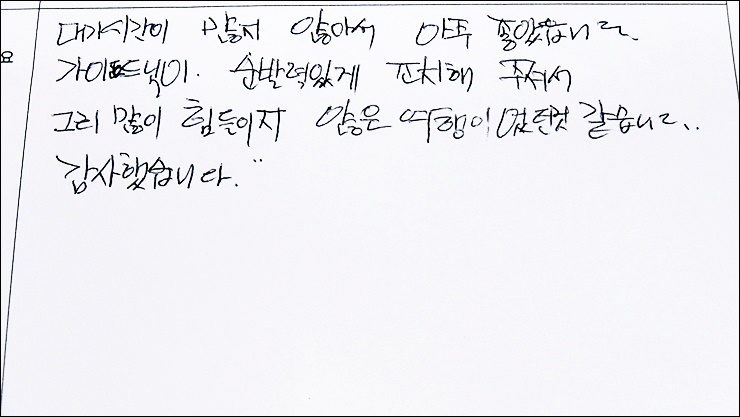 대기시간이 많지 않아서 아주 좋았습니다.
요
가이드님이. 순발력있게 조치해 주셔서
그리 많이 힘들이지 않은 여행이 였던것 같습니다..
감사했습니다.¨